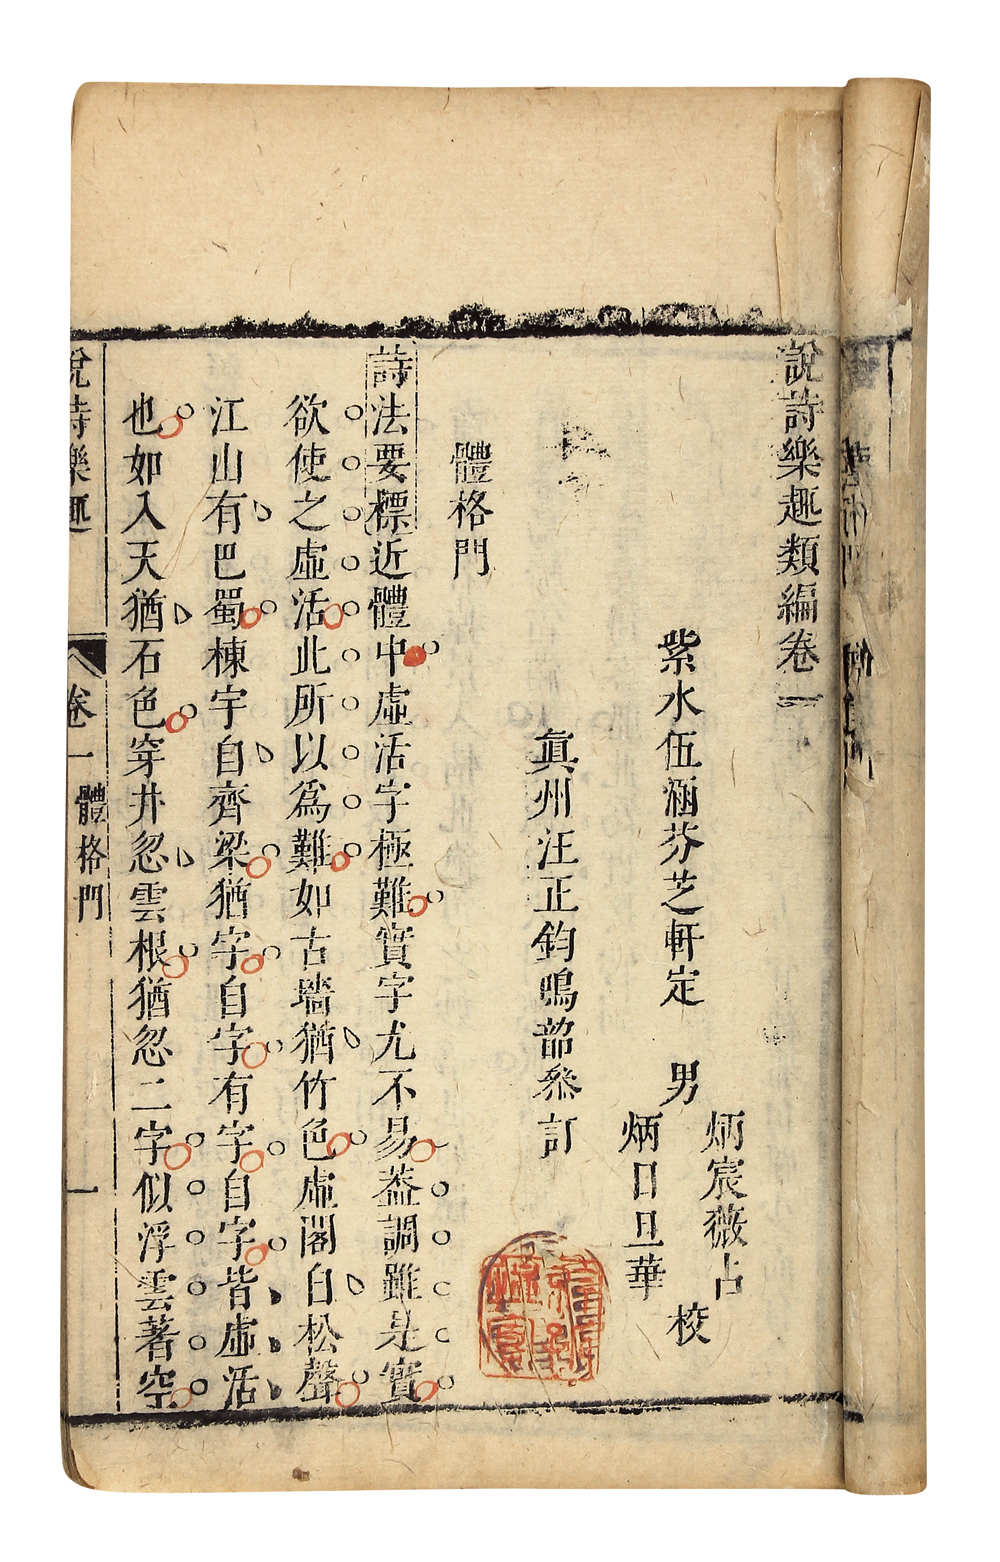 說詩樂趣類編卷一
紫水伍涵芬芝軒定 男
炳宸薇占
炳日旦華
校
眞州汪正鈞鳴韶叅訂
體格門
詩法要標近體中虛活字極難實字尤不易葢調雖是實
欲使之虛活此所以爲難如古墻猶竹色虛閣自松聲
江山有巴蜀棟宇自齊梁猶字自字有字自字皆虛活
也如入天猶石色穿井忽雲根猶忽二字似浮雲著空
說詩樂趣 卷一 體格門 一